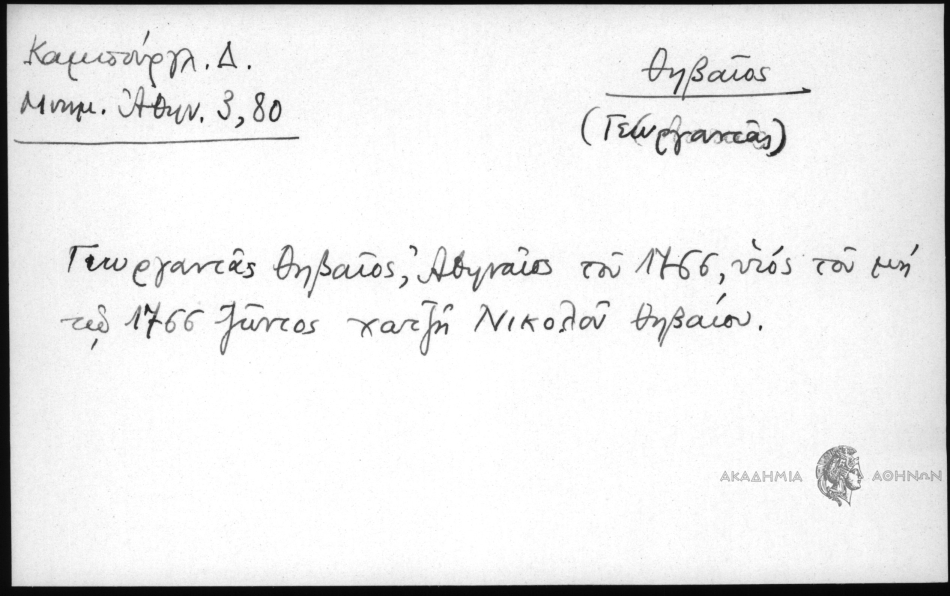 Καμπούργλ. Δ.
Μνημ. Ἀθην. 3, 80
Θηβαῖος
(Γεωργαντᾶς)
Γεωργαντᾶς Θηβαῖος, Ἀθηναῖος τοῦ 1766, υἱός τοῦ μή
τῷ 1766 ζῶντος χατζῆ Νικολοῦ Θηβαίου.
ΑΚΑΔΗΜΙΑ ΑΘΗΝΩΝ